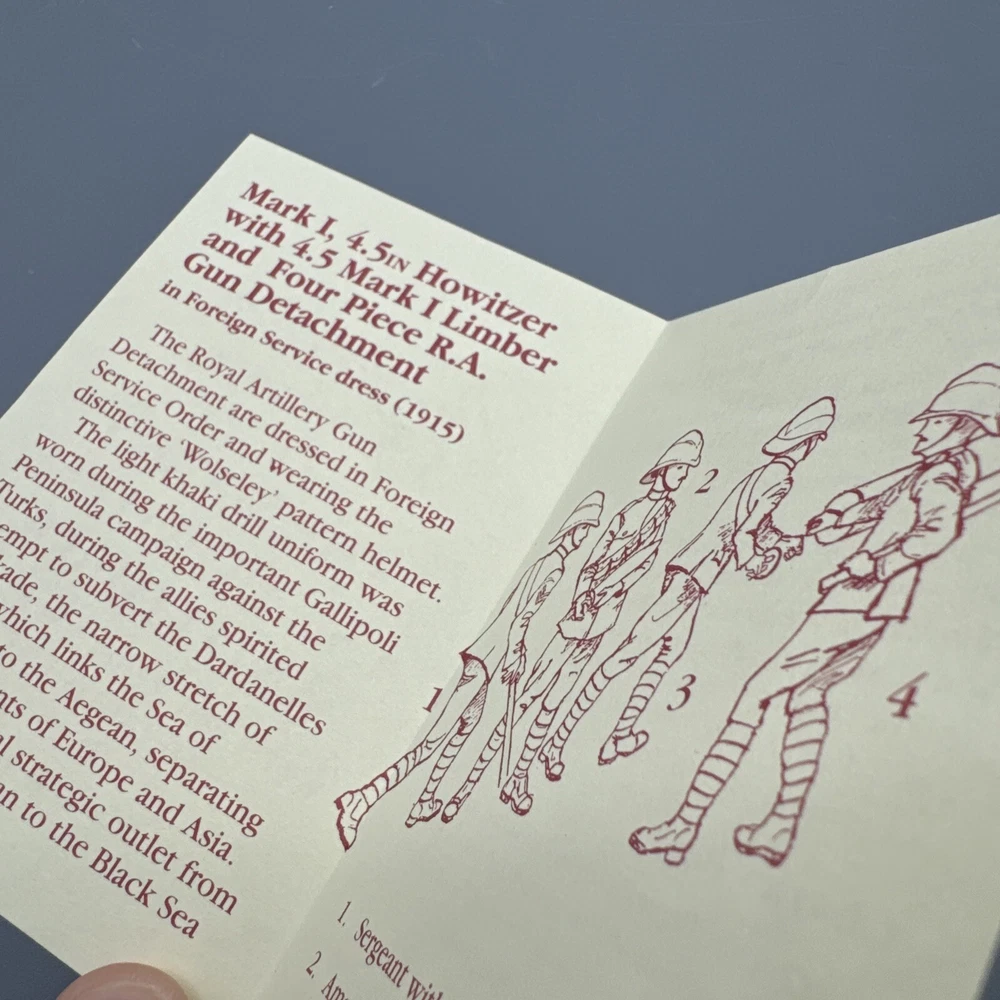 Mark I, 4.5IN Howitzer
with 4.5 Mark I Limber
and Four Piece R.A.
Gun Detachment
in Foreign Service dress (1915)
The Royal Artillery Gun
Detachment are dressed in Foreign
Service Order and wearing the
distinctive ‘Wolseley’ pattern helmet.
The light khaki drill uniform was
worn during the important Gallipoli
Peninsula campaign against the
Turks, during the allies spirited
to subvert the Dardanelles
the narrow stretch of
which links the Sea of
to the Aegean, separating
of Europe and Asia.
strategic outlet from
to the Black Sea
1
2
3
4
1. Sergeant with
2.